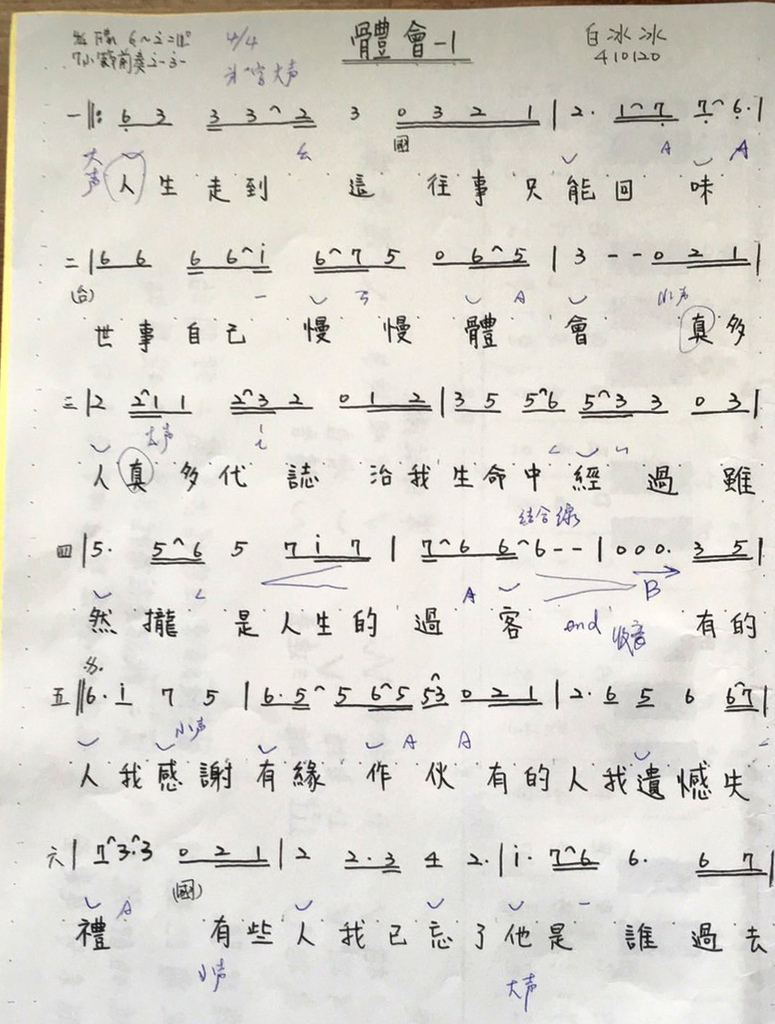 4/4 體會-1 白冰冰
7小節前奏 2-3- 410120
大声
一 ‖: 6 3 3 3^2 3 0 3 2 1 | 2. 1^7 7^6. |
國 A A
大声 人生走到這往事只能回味
二 | 6 6 6 6^i 6^7 5 0 6^5 | 3 - - 0 2 1 |
(台) A 小声
世事自己慢慢體會 真多
三 | 2 2^1 1 2^3 2 0 1 2 | 3 5 5^6 5^3 3 0 3 |
大声
人真多代誌治我生命中經過雖
結合線
四 | 5. 5^6 5 7 i 7 | 7^6 6^6 - - | 0 0 0. 3 5 |
A B
然攏是人生的過客 end 收音 有的
五 ‖ 6. i 7 5 | 6. 5^5 6^5 5^3 0 2 1 | 2. 6 5 6 6^7 |
小声 A A
人我感謝有緣作伙有的人我遺憾失
六 | 7^3.^3 0 2 1 | 2 2. 3 4 2. | i. 7^6 6. 6 7 |
A (國)
禮 有些人我已忘了他是誰過去
小声 大声